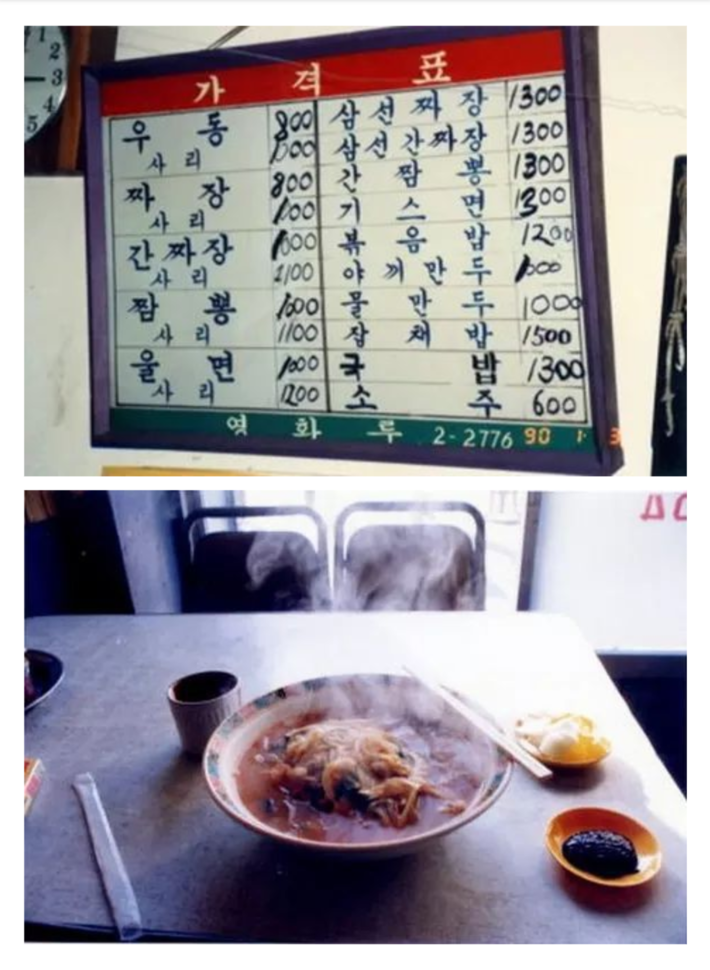 2
3
4
5
가 격 표
우 동 800
사 리 1000
짜 장 800
사 리 1000
간 짜 장 1000
사 리 1100
짬 뽕 1000
사 리 1100
울 면 1000
사 리 1200
삼 선 짜 장 1300
삼 선 간 짜 장 1300
간 짬 뽕 1300
기 스 면 1300
볶 음 밥 1200
야 끼 만 두 1000
물 만 두 1000
잡 채 밥 1500
국 밥 1300
소 주 600
영 화 루 2-2776
90 1 3